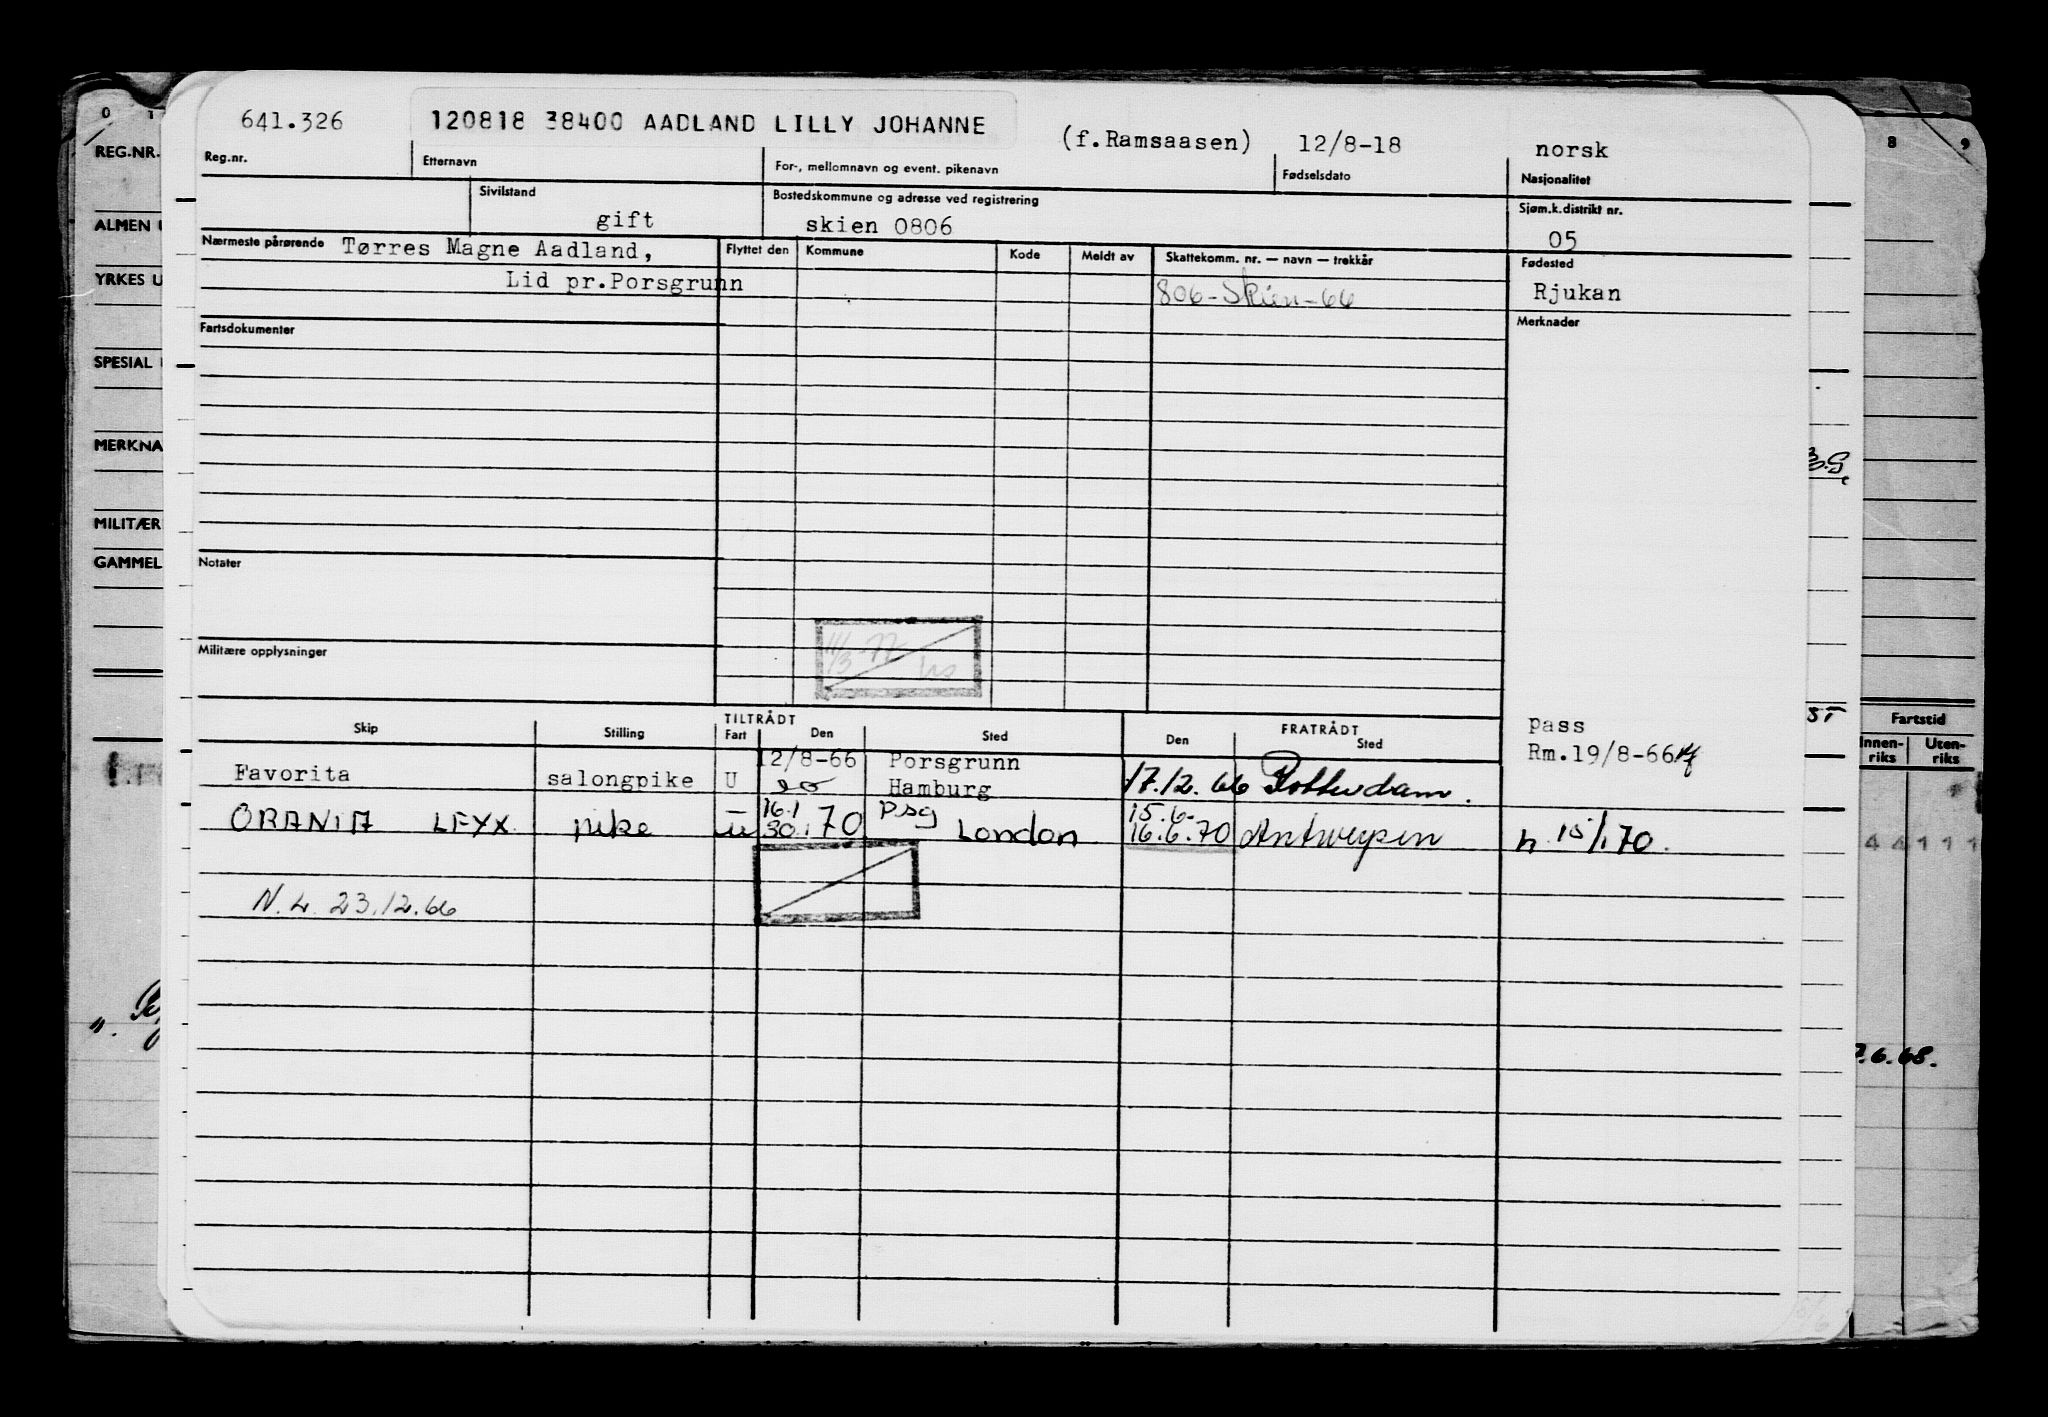 0 1
8 9
641.326 120818 38400 AADLAND LILLY JOHANNE (f.Ramsaasen) 12/8-18 norsk
Reg.nr. Etternavn For-, mellomnavn og event. pikenavn Fødselsdato Nasjonalitet
Sivilstand Bostedskommune og adresse ved registrering Sjøm.k.distrikt nr.
gift skien 0806 05
Nærmeste pårørende Tørres Magne Aadland, Flyttet den Kommune Kode Meldt av Skattekomm. nr. — navn — trekkår Fødested
Lid pr.Porsgrunn 806-Skien-66 Rjukan
Fartsdokumenter Merknader
Notater
11/3-77
Militære opplysninger
TILTRÅDT FRATRÅDT
Skip Stilling Fart Den Sted Den Sted pass
12/8-66 Porsgrunn Rm.19/8-66
Favorita salongpike U Hamburg 17.12.66 Rotterdam.
16.1 Psg 15.6.
ORANIA LFYX pike U 30.1 70 London 16.6.70 Antwerpen h 15/1 70.
N.L. 23.12.66
REG.NR.
ALMEN U
YRKES U
SPESIAL
MERKNA
MILITÆR
GAMMEL
ST
Fartstid
Innen-riks Uten-riks
4 4 1 1 1
.6.68.